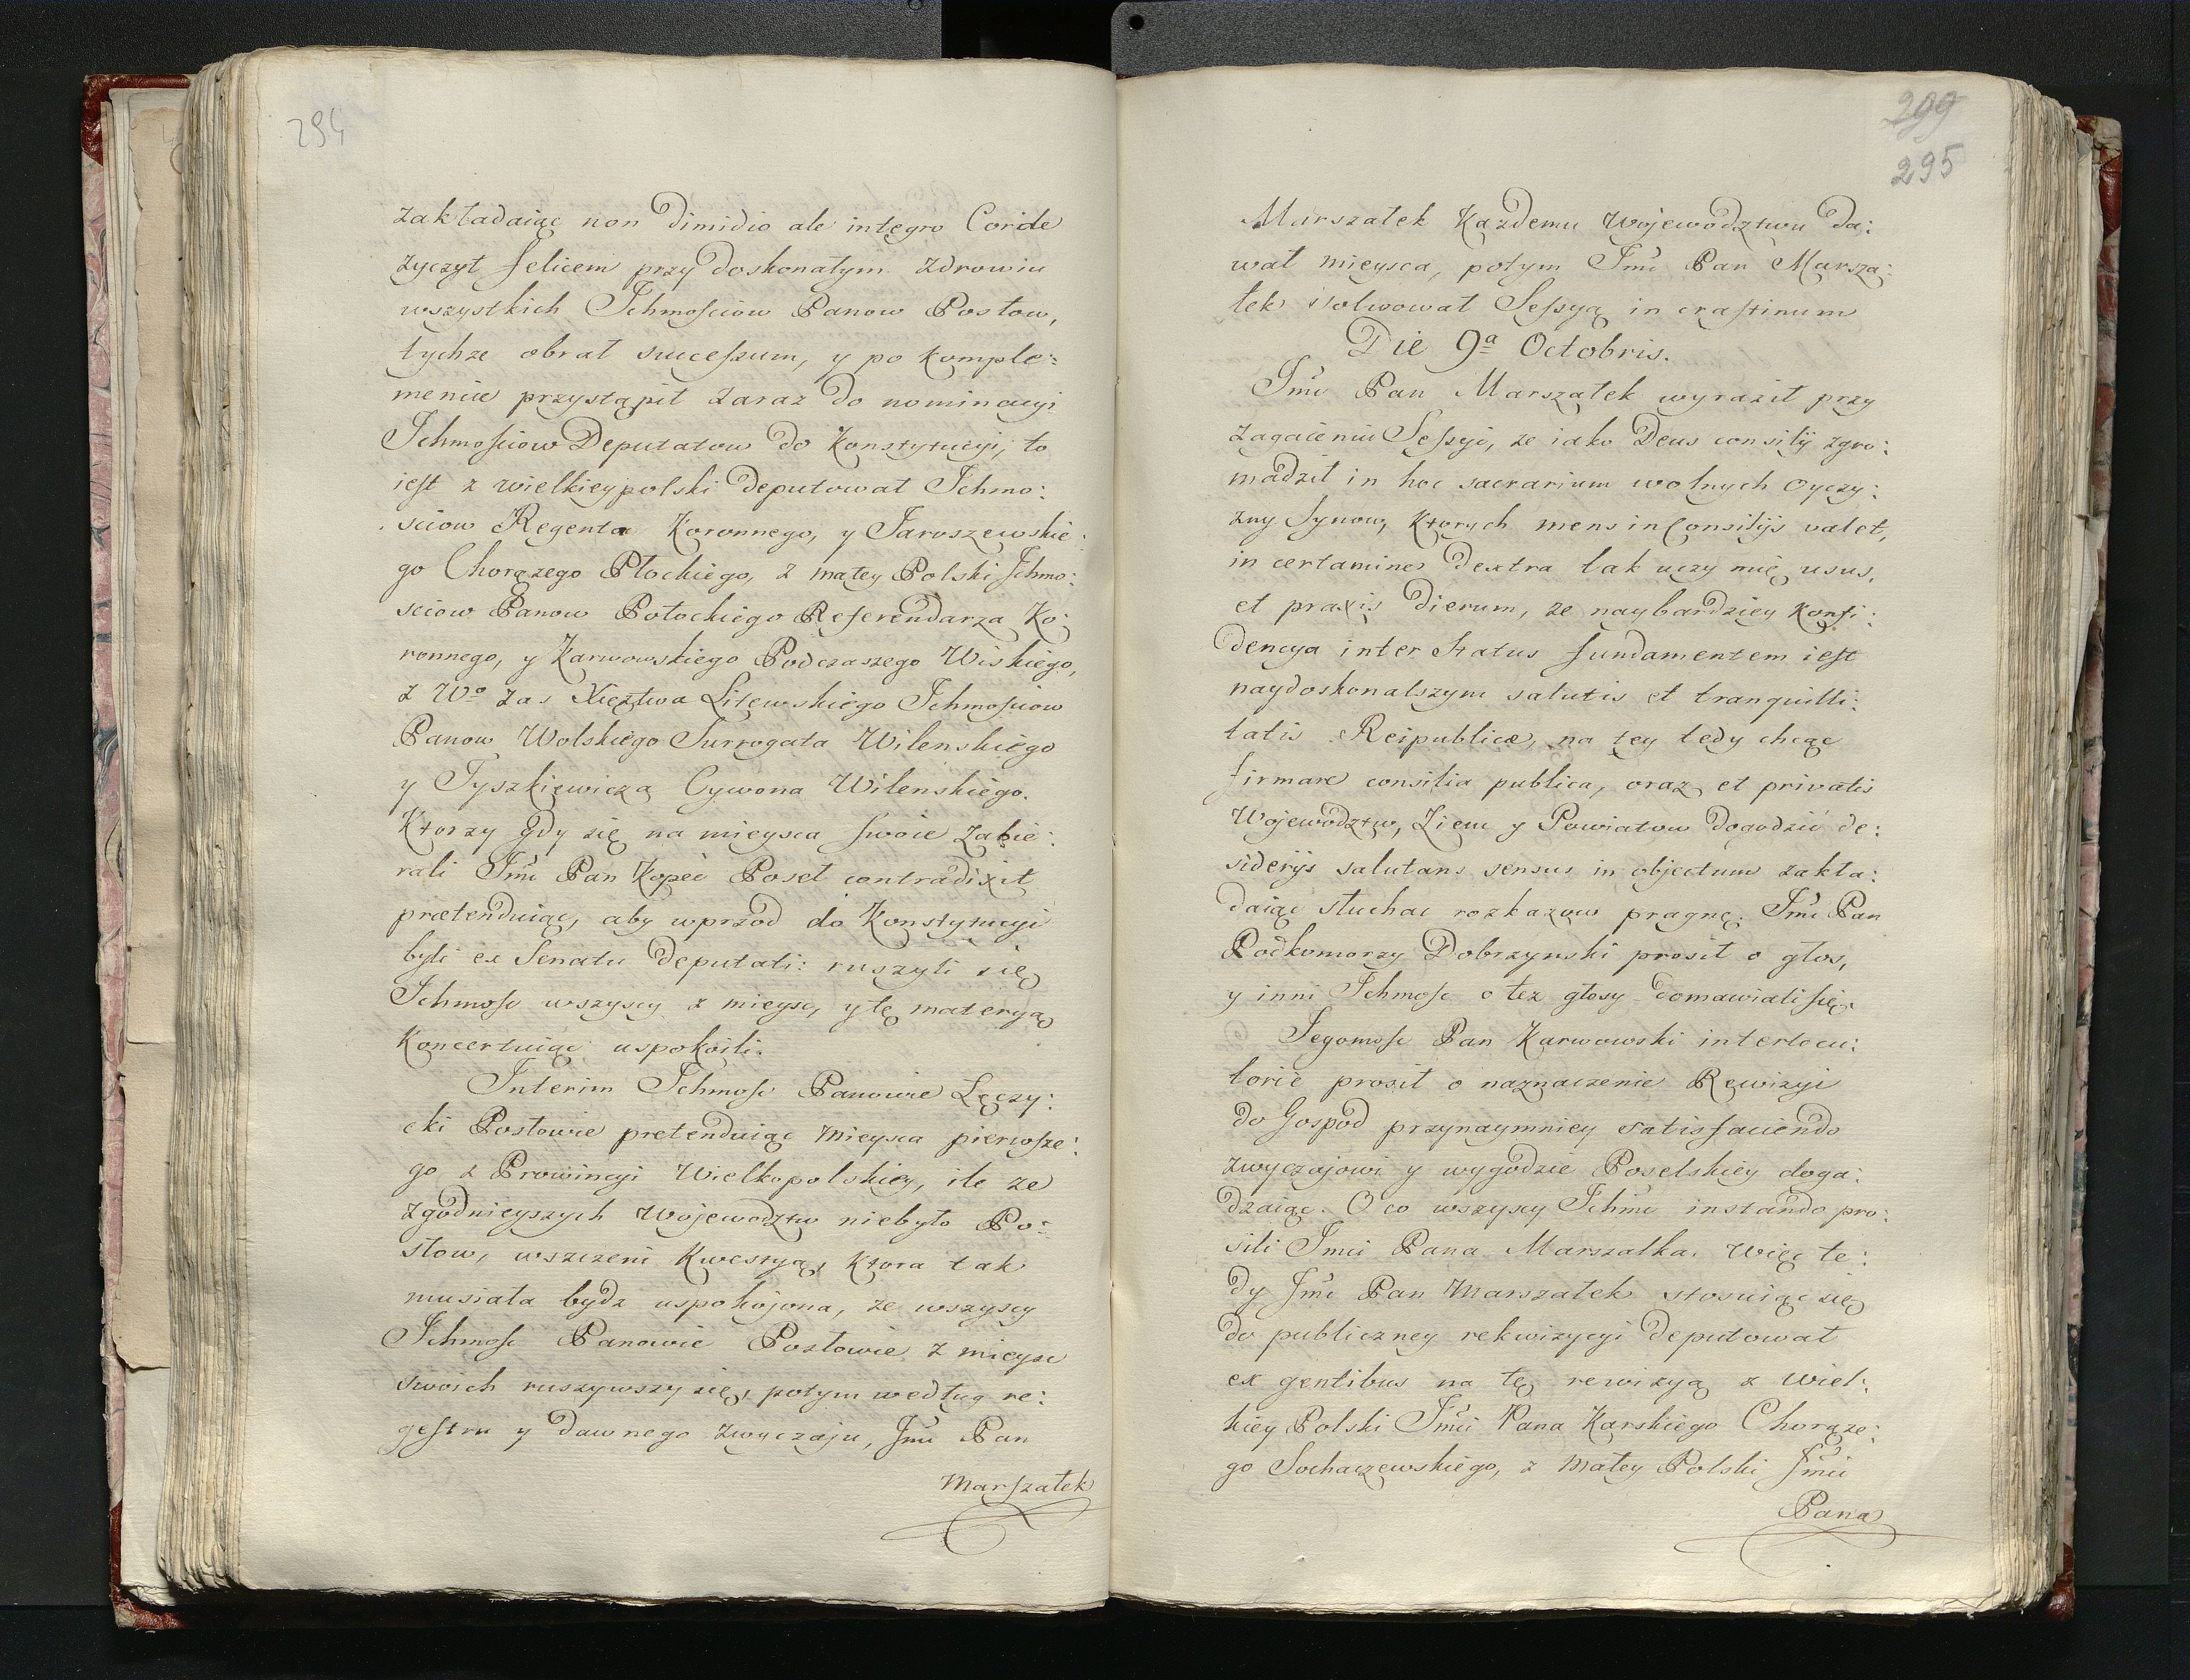 294
zakładaiąc non dimidio ale integro Corde
życzył felicem przy doskonałym zdrowiu
wszystkich Ichmosciow Panow Posłow,
tychże obrał successum, y po komple:
mencie przystąpił zaraz do nominacyi
Ichmosciow Deputatow do Konstytucyi, to
iest z wielkieypolski deputował Ichmo:
sciow Regenta Koronnego, y Jaroszewskie:
go Chorążego Płockiego, z małey Polski Ichmo:
sciow Panow Potockiego Referendarza Ko:
ronnego, y Karwowskiego Podczaszego Wiskiego,
z Wo zas Xięztwa Litewskiego Ichmosciow
Panow Wolskiego Surrogata Wilenskiego
y Tyszkiewicza Cywona Wilenskiego.
Ktorzy gdy się na mieysca swoie zabie:
rali Jmć Pan Kopeć Poseł contradixit
prætenduiąc, aby wprzod do Konstytucyi
byli ex Senatu deputati: ruszyli się
Ichmosc wszyscy z mieysc, y tę materyą
Koncertuiąc uspokoili.
Interim Ichmosc Panowie Łęczy:
cki Posłowie pretenduiąc mieysca pierwsze:
go z Prowincyi Wielkopolskiey, ile że
zgodnieyszych Wojewodztw niebyło Po:
słow, wszczeni Kwestyą, Ktora tak
musiała bydz uspokojona, że wszyscy
Ichmosc Panowie Posłowie z mieysc
swoich ruszywszy się, potym według re:
gestru y dawnego zwyczaju, Jmć Pan
Marszałek
299
295
Marszałek Każdemu Wojewodztwu da:
wał mieysca, potym Jmć Pan Marsza:
łek solwował Sessyą in crastinum
Die 9a Octobris.
Jmć Pan Marszałek wyraził przy
zagaieniu Sessyi, że iako Deus consilij zgro:
madził in hoc sacrarium wolnych Oyczy:
zny Synow, Ktorych mens in Consilijs valet,
in certamine dextra tak uczy mię usus,
et praxis dierum, że naybardziey Konfi:
dencya inter status fundamentem iest
naydoskonalszym salutis et tranquilli:
tatis Reipublicæ, na tey tedy chcąc
firmare consilia publica, oraz et privatis
Wojewodztw, Ziem y Powiatow dogodzić de:
siderijs salutans sensus in objectum zakła:
daiąc słuchac rozkazow pragnę. Jmć Pan
Podkomorzy Dobrzynski prosił o głos,
y inni Ichmosc o też głosy domawiali się.
Jegomosc Pan Karwowski interlocu:
torie prosił o naznaczenie Rewizyi
do Gospod przynaymniey satisfaciendo
zwyczajowi y wygodzie Poselskiey doga:
dzaiąc. O co wszyscy Ichmć instando pro:
sili Jmci Pana Marszałka. Więc te:
dy Jmć Pan Marszałek stosuiąc się
do publiczney rekwizycyi deputował
ex gentibus na tę rewizyą z Wiel:
kiey Polski Jmci Pana Karskiego Chorąże:
go Sochaczewskiego, z małey Polski Jmci
Pana